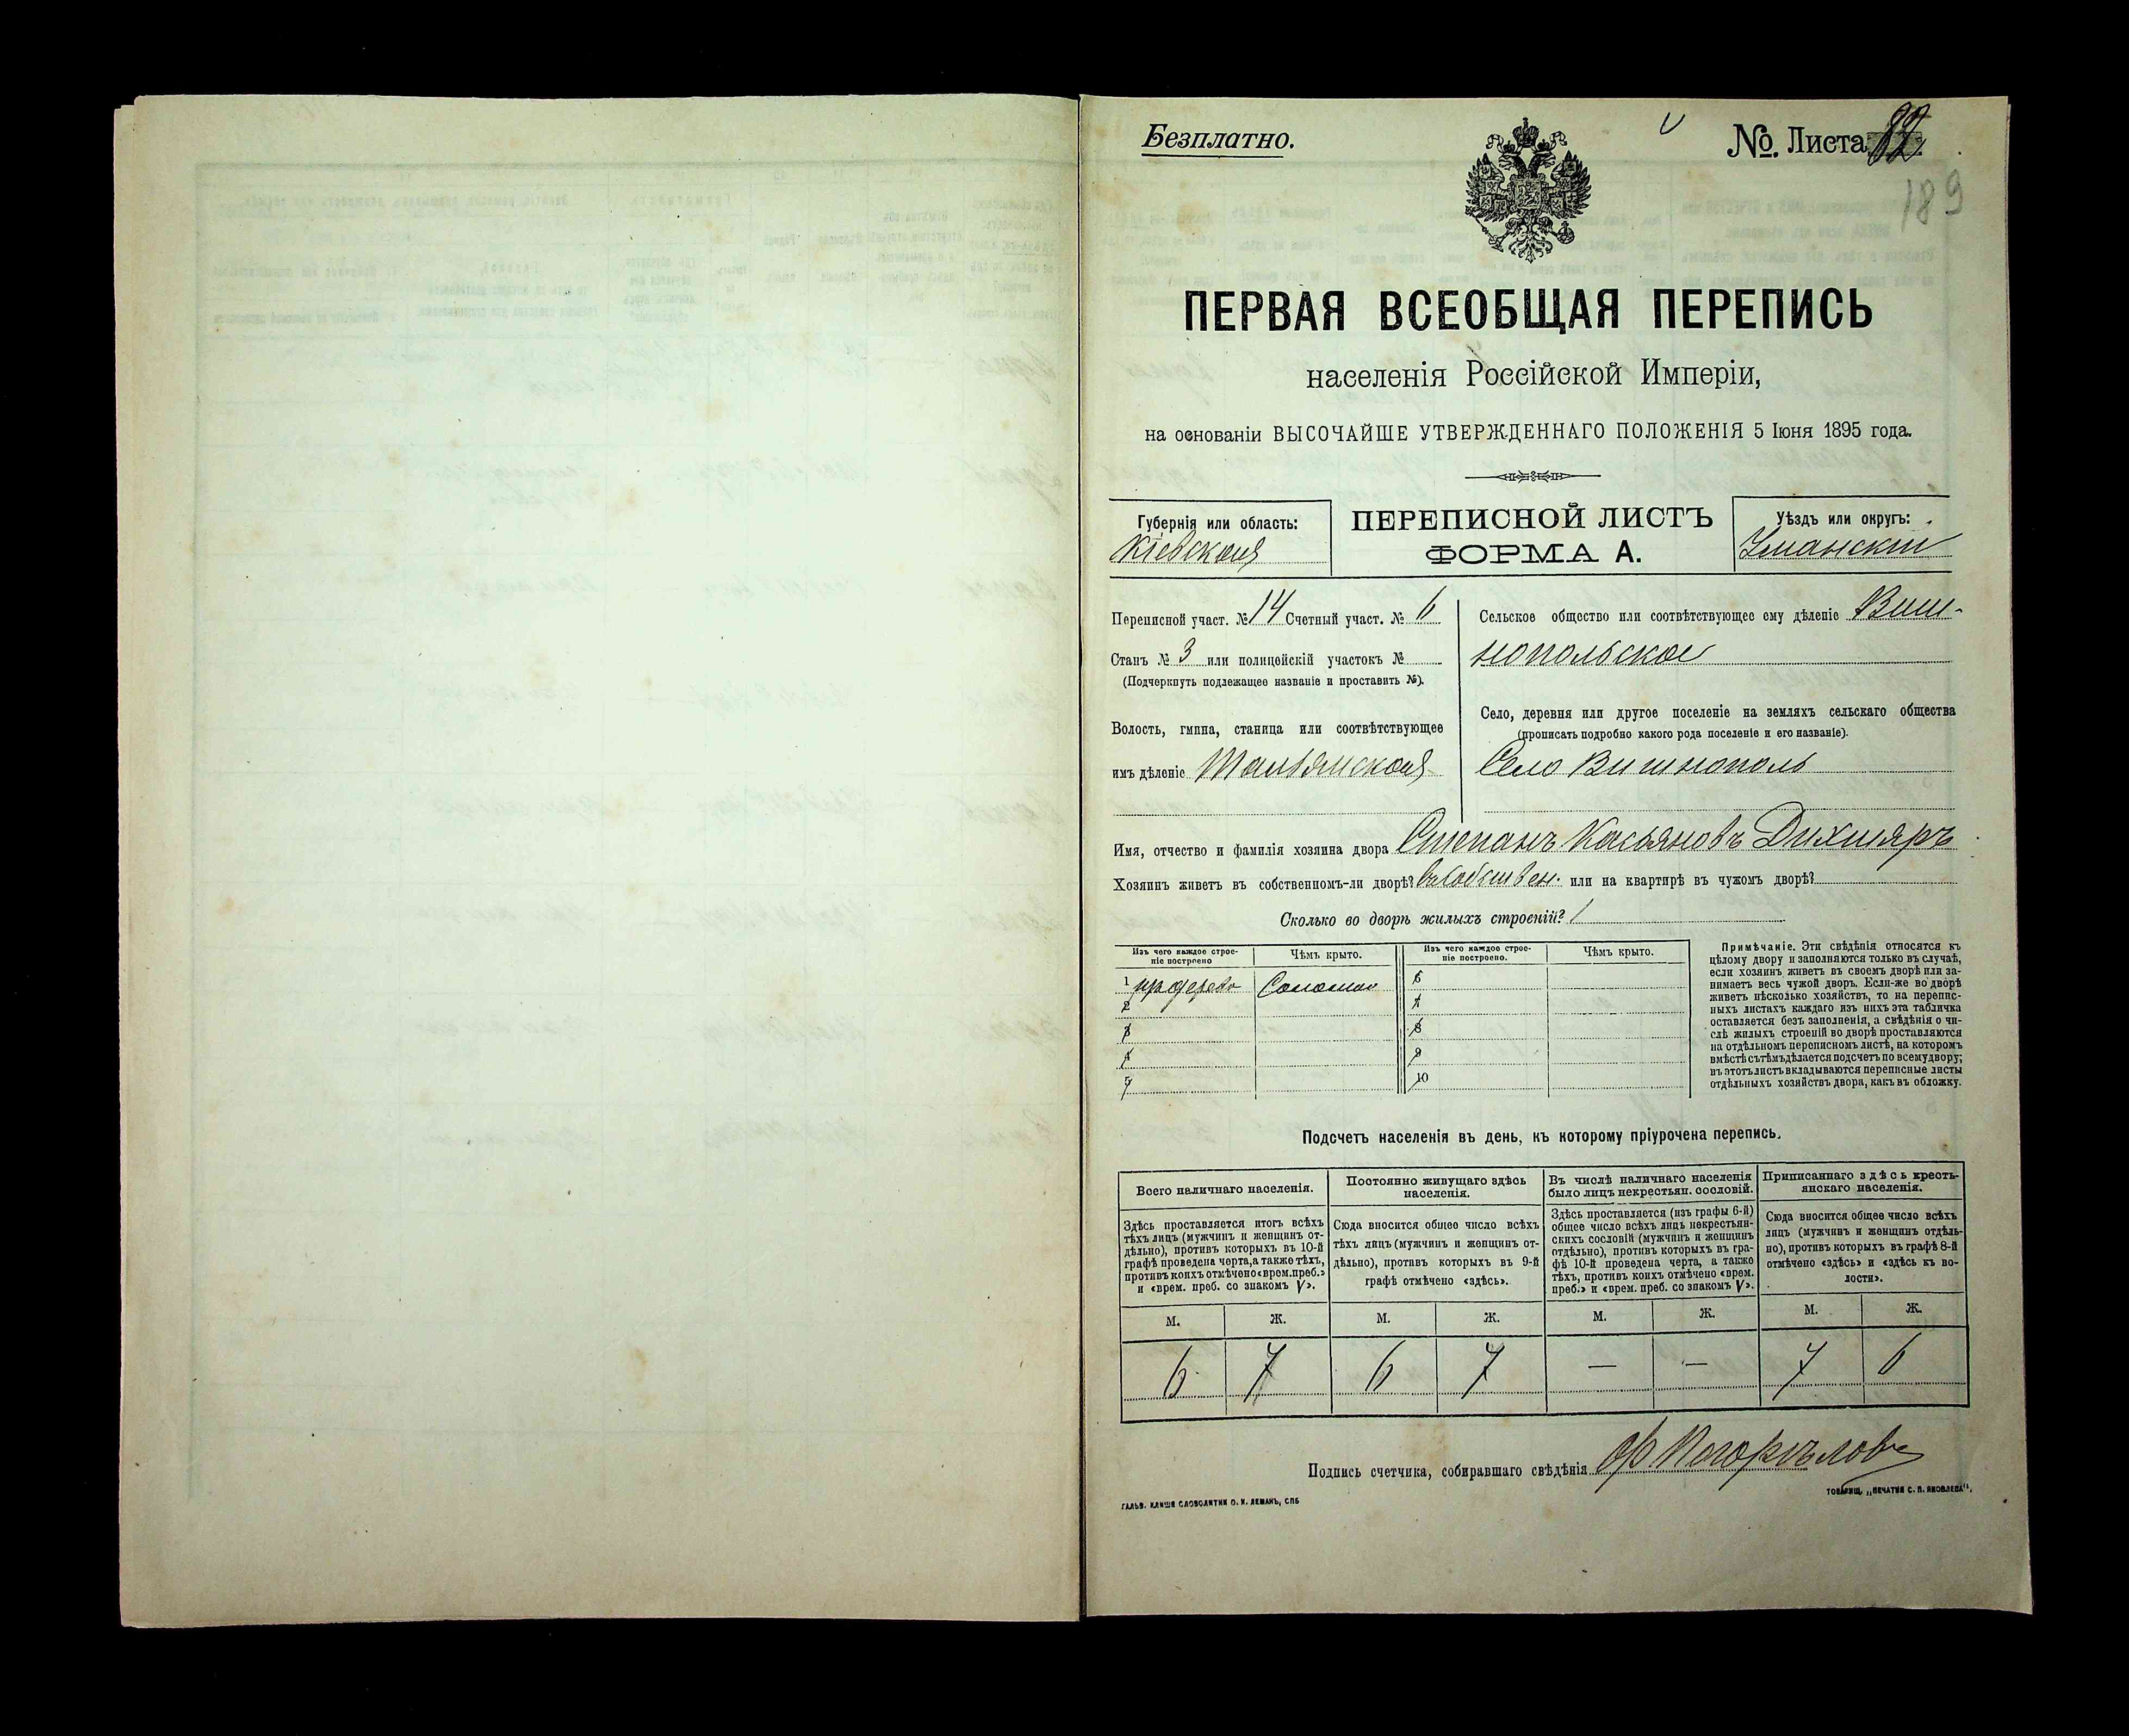 Безплатно.
№ Листа
189
ПЕРВАЯ ВСЕОБЩАЯ ПЕРЕПИСЬ
населенія Россійской Имперіи,
на основаніи ВЫСОЧАЙШЕ УТВЕРЖДЕННАГО ПОЛОЖЕНІЯ 5 Іюня 1895 года.
Губернія или область:
Кіевская
ПЕРЕПИСНОЙ ЛИСТЪ
ФОРМА А.
Уѣздъ или округъ:
Уманскій
Переписной участ. № 14 Счетный участ. № 6
Станъ № 3 или полицейскій участокъ №
(Подчеркнуть подлежащее названіе и проставить №).
Волость, гмина, станица или соотвѣтствующее
имъ дѣленіе Тальянская
Сельское общество или соотвѣтствующее ему дѣленіе Виш-
нопольское
Село, деревня или другое поселеніе на земляхъ сельскаго общества
(прописать подробно какого рода поселеніе и его названіе).
Село Вишнополь
Имя, отчество и фамилія хозяина двора Степанъ Касьяновъ Дихтяръ
Хозяинъ живетъ въ собственномъ-ли дворѣ? въ собствен. или на квартирѣ въ чужомъ дворѣ?
Сколько во дворѣ жилыхъ строеній? 1
Изъ чего каждое строе-
ніе построено
Чѣмъ крыто.
Изъ чего каждое строе-
ніе построено.
Чѣмъ крыто.
1 дерево Соломою
2
3
4
5
6
7
8
9
10
Примѣчаніе. Эти свѣдѣнія относятся къ
цѣлому двору и заполняются только въ случаѣ,
если хозяинъ живетъ въ своемъ дворѣ или за-
нимаетъ весь чужой дворъ. Если-же во дворѣ
живетъ нѣсколько хозяйствъ, то на перепис-
ныхъ листахъ каждаго изъ нихъ эта табличка
оставляется безъ заполненія, а свѣдѣнія о чи-
слѣ жилыхъ строеній во дворѣ проставляются
на отдѣльномъ переписномъ листѣ, на которомъ
вмѣстѣ съ тѣмъ дѣлается подсчетъ по всему двору;
въ этотъ листъ вкладываются переписные листы
отдѣльныхъ хозяйствъ двора, какъ въ обложку.
Подсчетъ населенія въ день, къ которому пріурочена перепись.
Всего наличнаго населенія.
Здѣсь проставляется итогъ всѣхъ
тѣхъ лицъ (мужчинъ и женщинъ от-
дѣльно), противъ которыхъ въ 10-й
графѣ проведена черта, а также тѣхъ,
противъ коихъ отмѣчено «врем. преб.»
и «врем. преб. со знакомъ V».
Постоянно живущаго здѣсь
населенія.
Сюда вносится общее число всѣхъ
тѣхъ лицъ (мужчинъ и женщинъ от-
дѣльно), противъ которыхъ въ 9-й
графѣ отмѣчено «здѣсь».
Въ числѣ наличнаго населенія
было лицъ некрестьян. сословій.
Здѣсь проставляется (изъ графы 6-й)
общее число всѣхъ лицъ некрестьян-
скихъ сословій (мужчинъ и женщинъ
отдѣльно), противъ которыхъ въ гра-
фѣ 10-й проведена черта, а также
тѣхъ, противъ коихъ отмѣчено «врем.
преб.» и «врем. преб. со знакомъ V».
Приписаннаго здѣсь кресть-
янскаго населенія.
Сюда вносится общее число всѣхъ
лицъ (мужчинъ и женщинъ отдѣль-
но), противъ которыхъ въ графѣ 8-й
отмѣчено «здѣсь» и «здѣсь къ во-
лости».
М. Ж. М. Ж. М. Ж. М. Ж.
6 7 6 7 — — 7 6
Подпись счетчика, собиравшаго свѣдѣнія Погорѣловъ
ГАЛЬВ. КЛИШЕ СЛОВОЛИТНИ О. И. ЛЕМАНЪ, СПБ
ТОВАРИЩ. „ПЕЧАТНЯ С. П. ЯКОВЛЕВА".